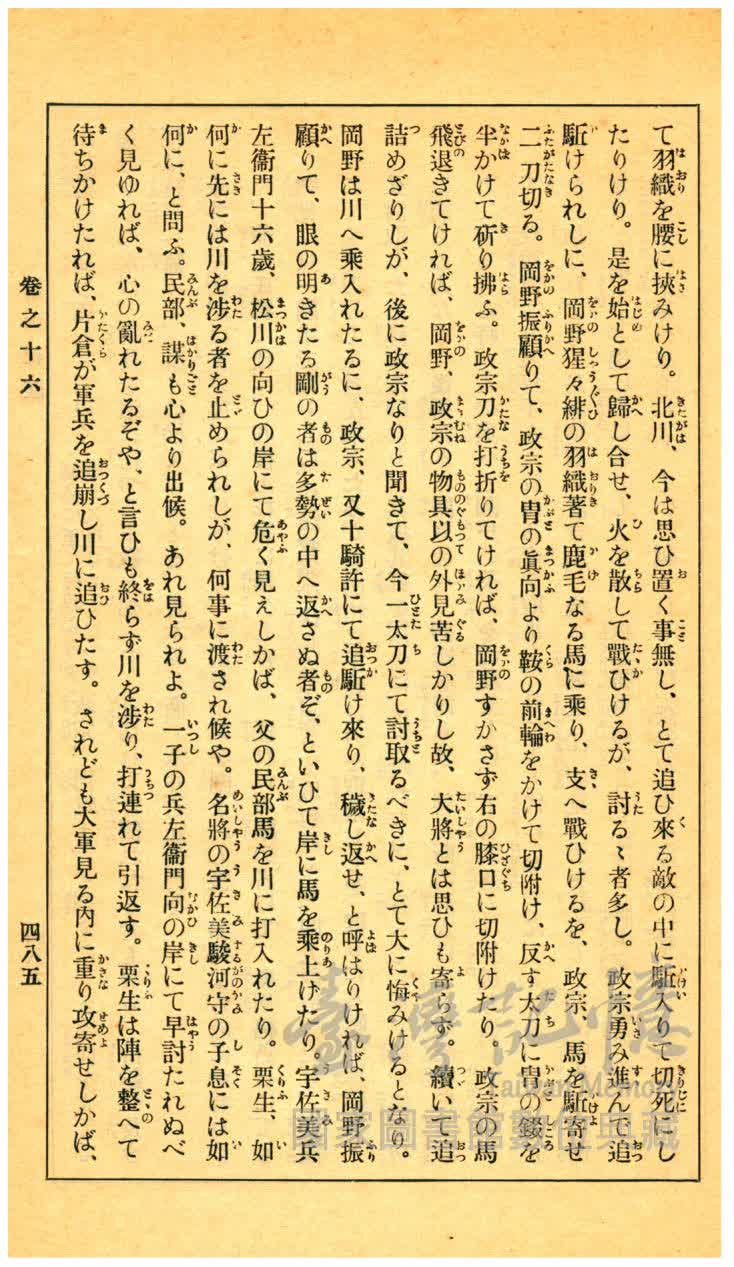 て羽織を腰に挾みけり。北川、今は思ひ置く事無し、とて追ひ來る敵の中に駈入りて切死にし
たりけり。是を始として歸し合せ、火を散して戰ひけるが、討るゝ者多し。政宗勇み進んで追
駈けられしに、岡野猩々緋の羽織著て鹿毛なる馬に乘り、支へ戰ひけるを、政宗、馬を駈寄せ
二刀切る。岡野振顧りて、政宗の冑の眞向より鞍の前輪をかけて切附け、反す太刀に冑の錣を
半かけて斫り拂ふ。政宗刀を打折りてければ、岡野すかさず右の膝口に切附けたり。政宗の馬
飛退きてければ、岡野、政宗の物具以の外見苦しかりし故、大將とは思ひも寄らず。續いて追
詰めざりしが、後に政宗なりと聞きて、今一太刀にて討取るべきに、とて大に悔みけるとなり。
岡野は川へ乘入れたるに、政宗、又十騎許にて追駈け來り、穢し返せ、と呼はりければ、岡野振
顧りて、眼の明きたる剛の者は多勢の中へ返さぬ者ぞ、といひて岸に馬を乘上げたり。宇佐美兵
左衞門十六歳、松川の向ひの岸にて危く見えしかば、父の民部馬を川に打入れたり。栗生、如
何に先には川を渉る者を止められしが、何事に渡され候や。名將の宇佐美駿河守の子息には如
何に、と問ふ。民部、謀も心より出候。あれ見られよ。一子の兵左衞門向の岸にて早討たれぬべ
く見ゆれば、心の亂れたるぞや、と言ひも終らず川を渉り、打連れて引返す。栗生は陣を整へて
待ちかけたれば、片倉が軍兵を追崩し川に追ひたす。されども大軍見る内に重り攻寄せしかば、
卷之十六
四八五
臺灣記憶
Taiwan Memory
國家圖書館數位典藏